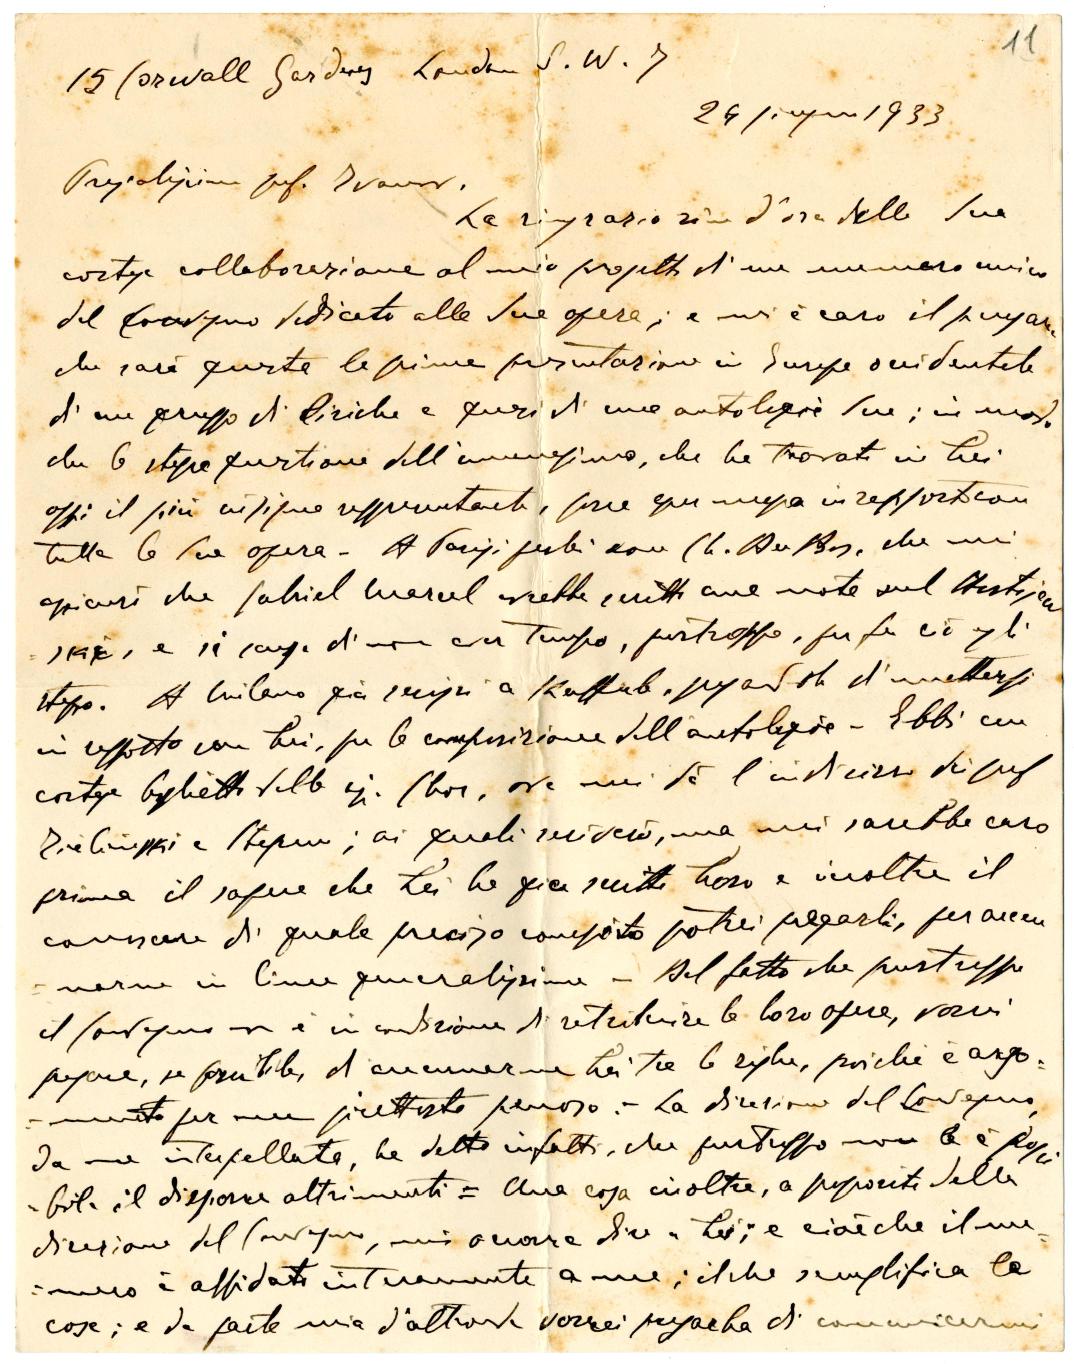 11
15 Corwall Gardens London S. W. 7
24 giugno 1933
Pregiatissimo prof. Ivanov.
La ringrazio sin d'ora della Sua
cortese collaborazione al mio progetto di un numero unico
del Convegno dedicato alla Sua opera; e mi è caro il pensare
che sarà questa la prima presentazione in Europa occidentale
di un gruppo di liriche e quasi di una antologia Sua; in modo
che la stessa questione dell'umanesimo, che ha trovato in Lei
oggi il più insigne rappresentante, sarà messa in rapporto con
tutta la Sua opera - A Parigi parlai con Ch. Du Bos, che mi
assicurò che Gabriel Marcel avrebbe scritto una nota sul Dostojew
-skij, e si scusa di non aver tempo, purtroppo, per far ciò egli
stesso. A Milano già scrissi a Kaffub, pregandolo di mettersi
in rapporto con Lei, per la composizione dell'antologia - Ebbi un
cortese biglietto della sig. Chor, ove mi dà l'indirizzo dei prof
Zielinski e Stepun; ai quali scriverò, ma mi sarebbe caro
prima il sapere che Lei ha già scritto loro e inoltre il
conoscere di quale preciso compito potrei pregarli, per accen
-narne in linea generalissima - Del fatto che purtroppo
il Convegno non è in condizione di retribuire le loro opere, vorrei
pregare, se possibile, di accennarne Lei tra le righe, poichè è argo=
=mento per me piuttosto penoso. - La direzione del Convegno,
da me interpellata, ha detto infatti, che purtroppo non le è possi
-bile il disporre altrimenti = Una cosa inoltre, a proposito della
direzione del Convegno, mi occorre dire a Lei; e cioè che il nu=
=mero è affidato interamente a me; il che semplifica le
cose; e da parte mia d'altronde vorrei pregarla di comunicarmi